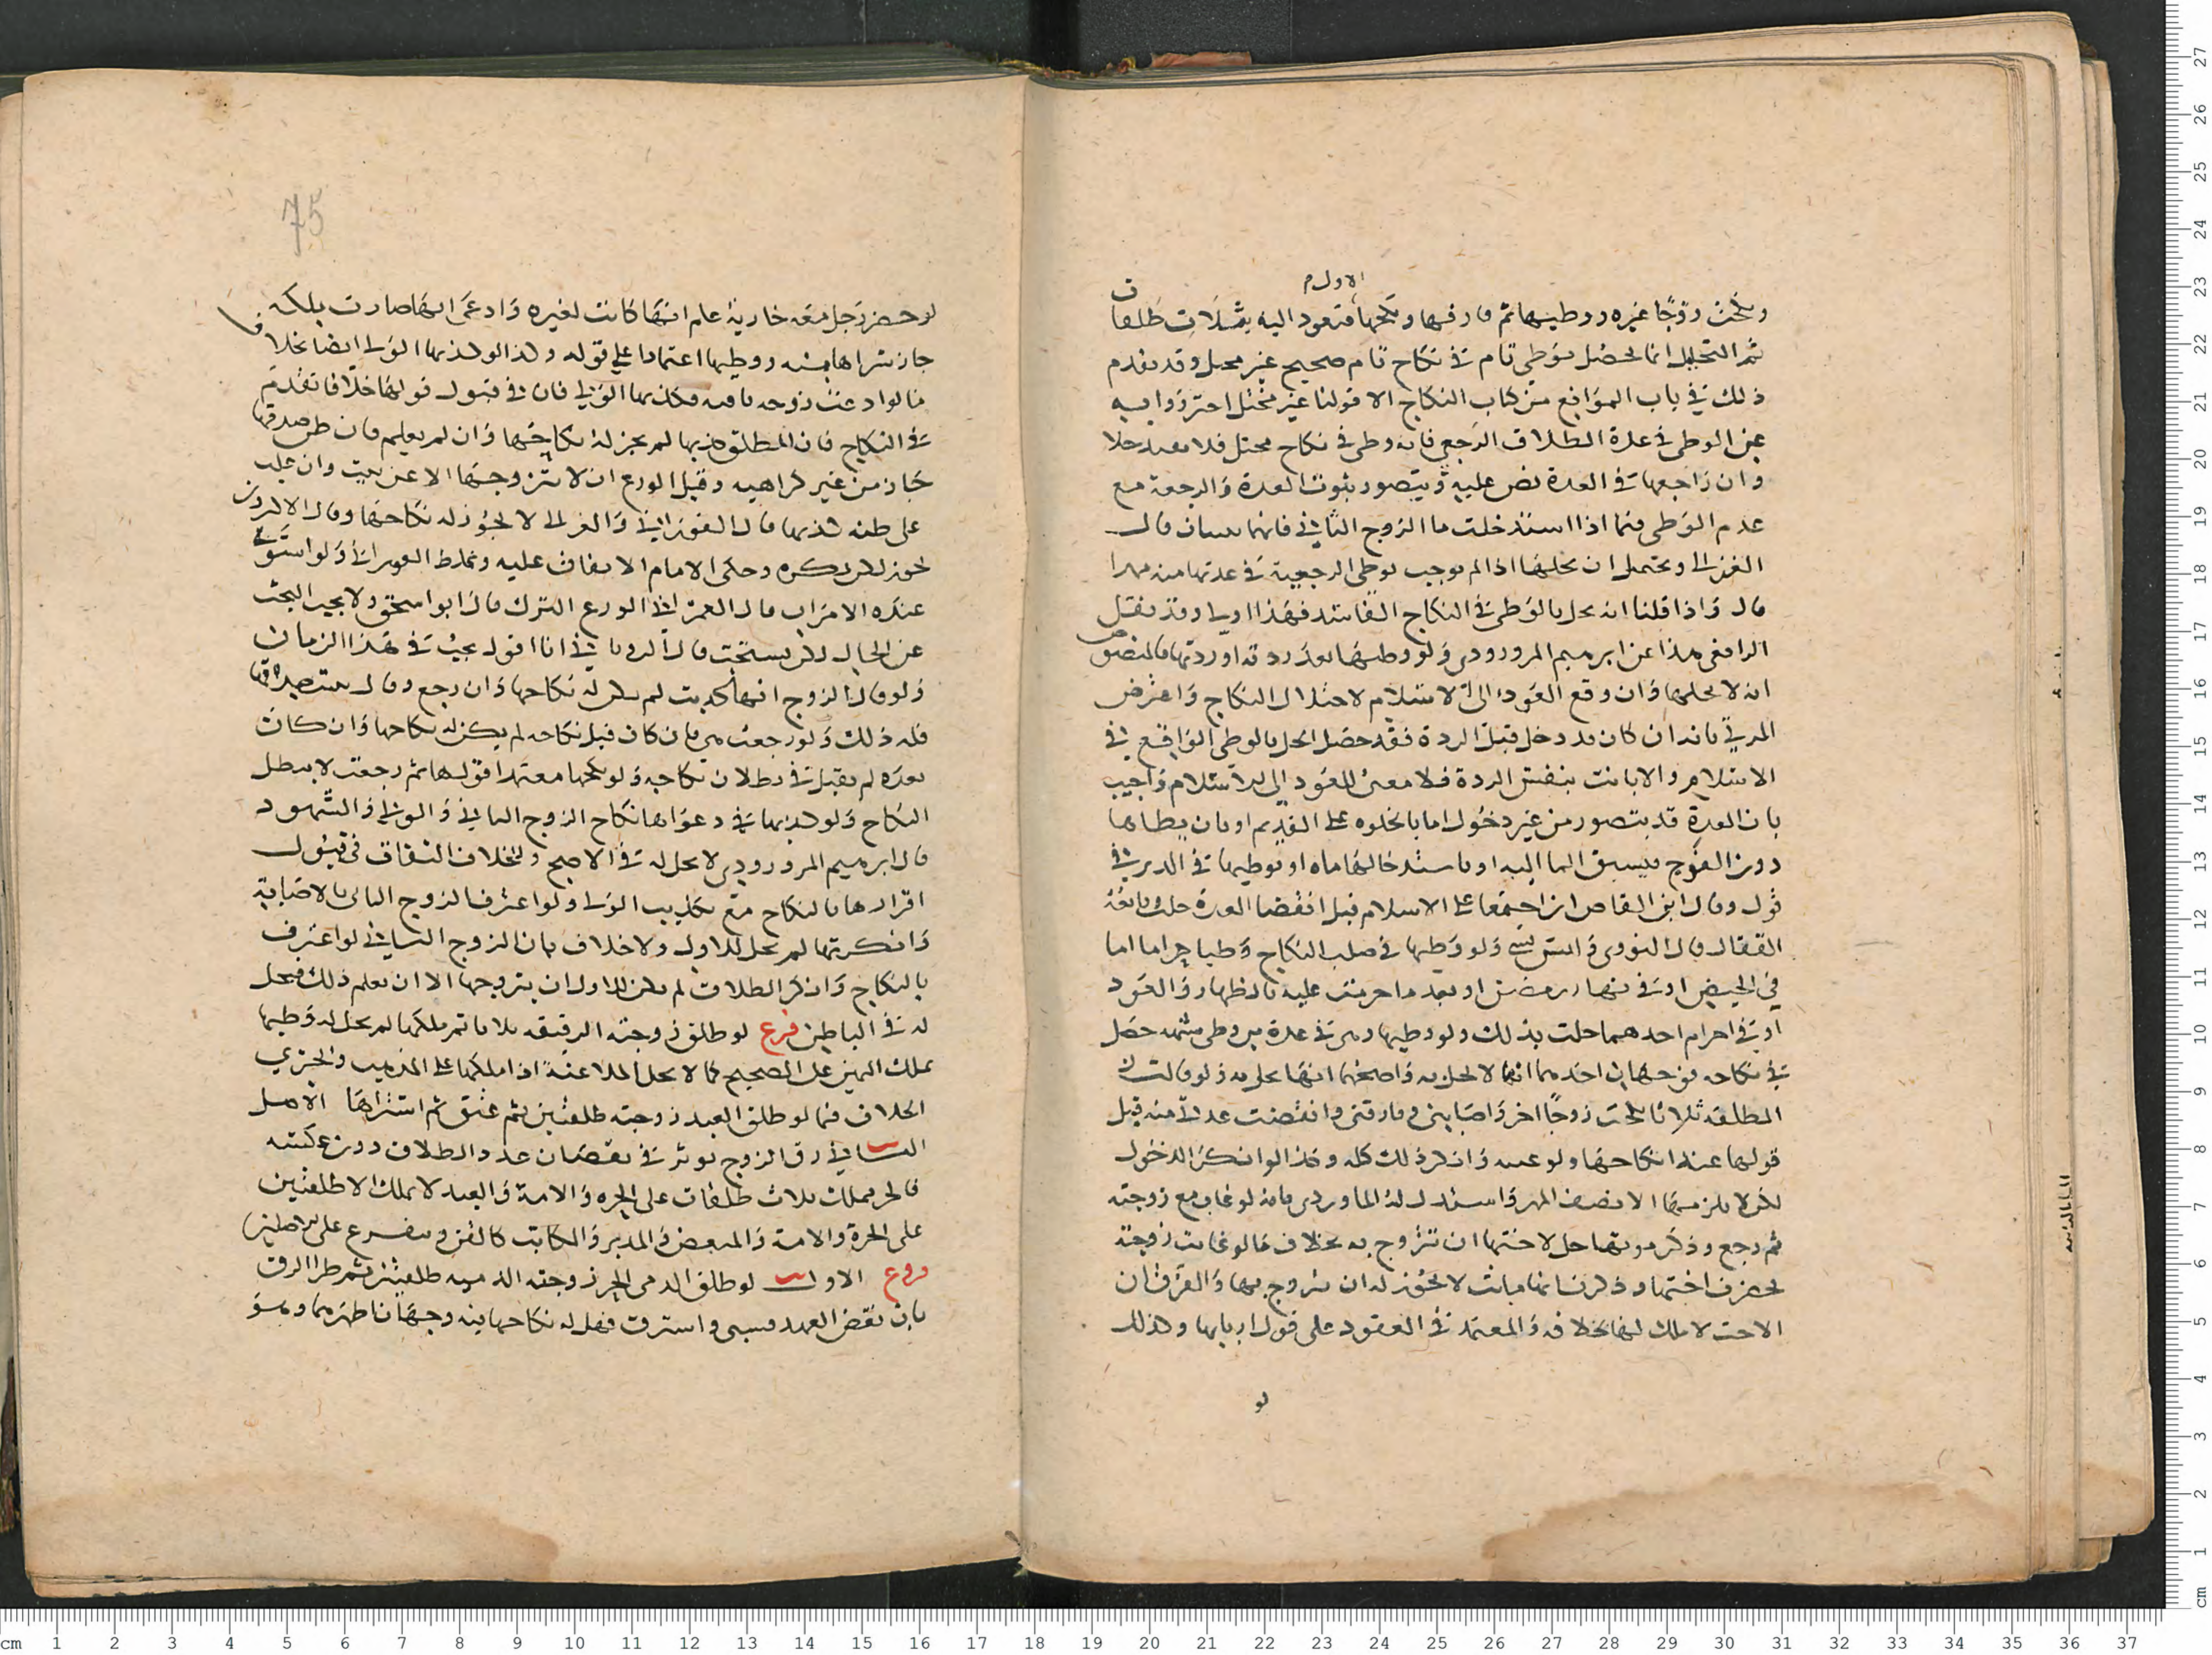 الاول م
ونكحت زوجًا غيره ووطيها ثم فارقها ونكحها فتعود اليه بثلاث طلقات
ثم التحليل انما يحصل بوطى تام في نكاح تام صحيح غير محتل وقد تقدم
ذلك في باب الموانع من كتاب النكاح الا قولنا غير مختل احترزوا به
عن الوطى في عدة الطلاق الرجعي فانه وطى في نكاح مختل فلا يفيد حلا
وان راجعها في العدة نص عليه ويتصور ثبوت العدة والرجعة مع
عدم الوطى فيما اذا استدخلت ما الزوج الثاني فانهما يثبتان قال
الغزالي ويحتمل ان يحلها اذا لم نوجب بوطى الرجعية في عدتها منه مهرا
قال واذا قلنا انه يحل بالوطى في النكاح الفاسد فهذا اولى وقد نقل
الرافعي هذا عن ابرهيم المروروذي ولو وطيها بعد ردته او ردتها فالمنصوص
انه لا يحلها وان وقع العود الى الاسلام لاختلال النكاح واعترض
المزني بانه ان كان قد دخل قبل الردة فقد حصل الحل بالوطى الواقع في
الاسلام والا بانت بنفس الردة فلا معنى للعود الى الاسلام واجيب
بان العدة قد يتصور من غير دخول اما بالخلوه على القديم او بان يطاها
دون الفرج فيسبق الما اليه او باستدخالها ماه او بوطيها في الدبر في
قول وقال ابن القاص ان اجتمعا على الاسلام قبل انقضا العدة حلت وتابعه
القفال قال النووي وليس بشي ولو وطيها في صلب النكاح وطيا حراما اما
في الحيض او في نهار رمضان او بعد ما حرمت عليه بالظهار والعود
او في احرام احدهما حلت بذلك ولو وطيها وهي في عدة من وطى شبهه حصل
في نكاحه فوجهان احدهما انها لا تحل به واصحهما انها تحل به ولو قالت
المطلقه ثلاثا نكحت زوجًا اخر واصابني وفارقني وانقضت عدتي منه قبل
قولها عند انكاحها ولو عينه وانكر ذلك كله وكذا لو انكر الدخول
لكن لا يلزمه الا نصف المهر واستدل له الماوردي بانه لو غاب مع زوجته
ثم رجع وذكر موتها حل لاختها ان تتزوج به بخلاف ما لو غابت زوجته
فحضرت اختها وذكرت انها ماتت لا يجوز له ان يتزوج بها والفرق ان
الاخت لا ملك لها بخلافه والمعتمد في العقود على قول اربابها وكذلك
لو
75
لو حضر رجل معه جارية علم انها كانت لغيره وادعى انها صارت بملكه
جاز شراها منه ووطيها اعتمادا على قوله وكذا لو كذبها الولي ايضا بخلاف
ما لو ادعت زوجه باقيه فكذبها الولي فان في قبول قولها خلافا تقدم
في النكاح فان المطلق كذبها لم يجز له نكاحها وان لم يعلم فان ظن صدقها
جاز من غير كراهيه وقيل الورع ان لا يتزوجها الا عن بحث وان غلب
على ظنه كذبها قال الفوراني والغزالي لا يجوز له نكاحها وقال الاكثرون
يجوز لكن يكره وحكى الامام الاتفاق عليه وغلط الفوراني ولو استوى
عنده الامران قال العمراني الورع الترك قال ابو اسحق ولا يجب البحث
عن الحال لكن يستحب قال الروياني انا اقول يجب في هذا الزمان
ولو قال الزوج انها كذبت لم يكن له نكاحها وان رجع وقال تبينت صدقها
فله ذلك ولو رجعت هي فان كان قبل نكاحه لم يكن له نكاحها وان كان
بعده لم يقبل في بطلان نكاحه ولو نكحها معتمدا قولها ثم رجعت لا يبطل
النكاح ولو كذبها في دعواها نكاح الزوج الثاني والولي والشهود
قال ابرهيم المروروذي لا يحل له في الاصح وللخلاف التفات في قبول
اقرارها بالنكاح مع تكذيب الولي ولو اعترف الزوج الثاني بالاصابة
وانكرتها لم يحل للاول ولا خلاف بان الزوج الثاني لو اعترف
بالنكاح وانكر الطلاق لم يكن للاول ان يتزوجها الا ان يعلم ذلك فيحل
له في الباطن فرع لو طلق زوجته الرقيقه ثلاثا ثم ملكها لم يحل له وطيها
بملك اليمين على الصحيح كما لا يحل الملاعنة اذا ملكها على المذهب ويجري
الخلاف فيما لو طلق العبد زوجته طلقتين ثم عتق ثم اشتراها الاصل
الثاني رق الزوج يوثر في نقصان عدد الطلاق دون عكسه
فالحر يملك ثلاث طلقات على الحره والامة والعبد لا يملك الا طلقتين
على الحرة والامة والمبعض والمدبر والمكاتب كالقن ويتفرع على الاصلين
فروع الاول لو طلق الذمي الحر زوجته الذميه طلقتين ثم طرا الرق
بان نقض العهد فسبي واسترق فهل له نكاحها فيه وجهان اظهرهما وهو